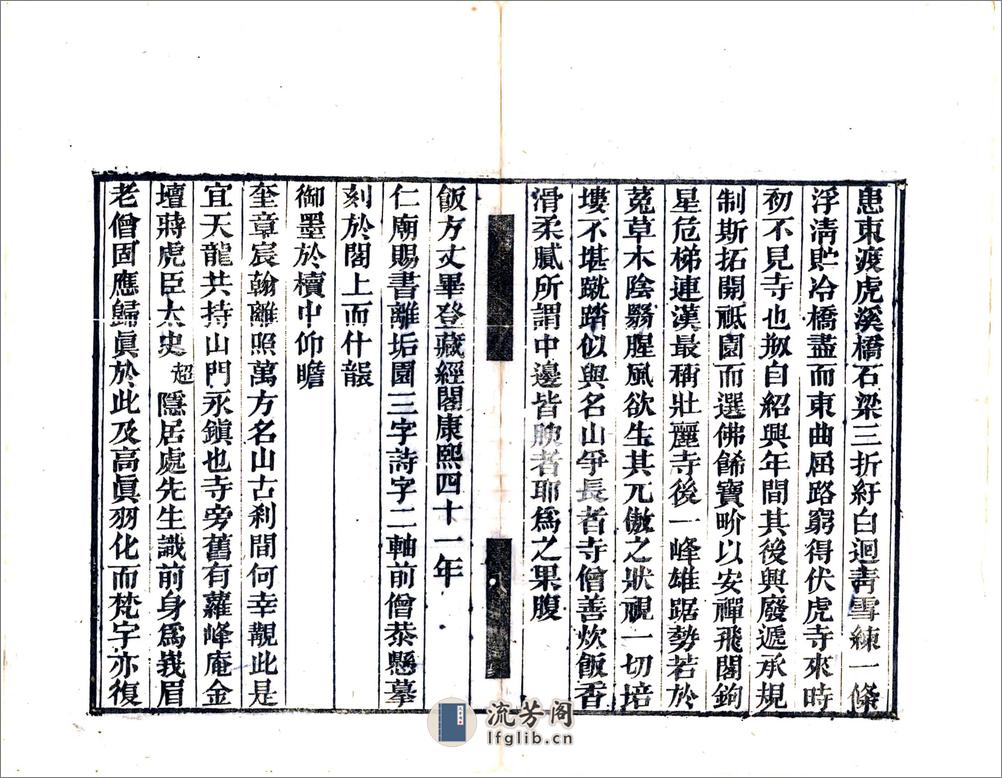 患東渡虎溪橋石梁三折紆白迴青雪練一條
浮淸貯冷橋盡而東曲屈路窮得伏虎寺來時
初不見寺也刱自紹興年間其後興廢遞承規
制斯拓開祗園而選佛餙寶畍以安禪飛閣鉤
星危梯連漢最稱壯麗寺後一峰雄踞勢若於
菟草木陰翳腥風欲生其兀傲之狀視一切培
塿不堪蹴踏似與名山爭長者寺僧善炊飯香
滑柔膩所謂中邊皆腴者耶爲之果腹
飯方丈畢登藏經閣康熙四十一年
仁廟賜書離垢園三字詩字二軸前僧恭懸摹
刻於閣上而什襲
御墨於櫝中仰瞻
奎章宸翰離照萬方名山古刹間何幸覩此是
宜天龍共持山門永鎭也寺旁舊有蘿峰庵金
壇蔣虎臣太史超隱居處先生識前身爲峩眉
老僧固應歸眞於此及高眞羽化而梵宇亦復
流芳閣
lfglib.cn